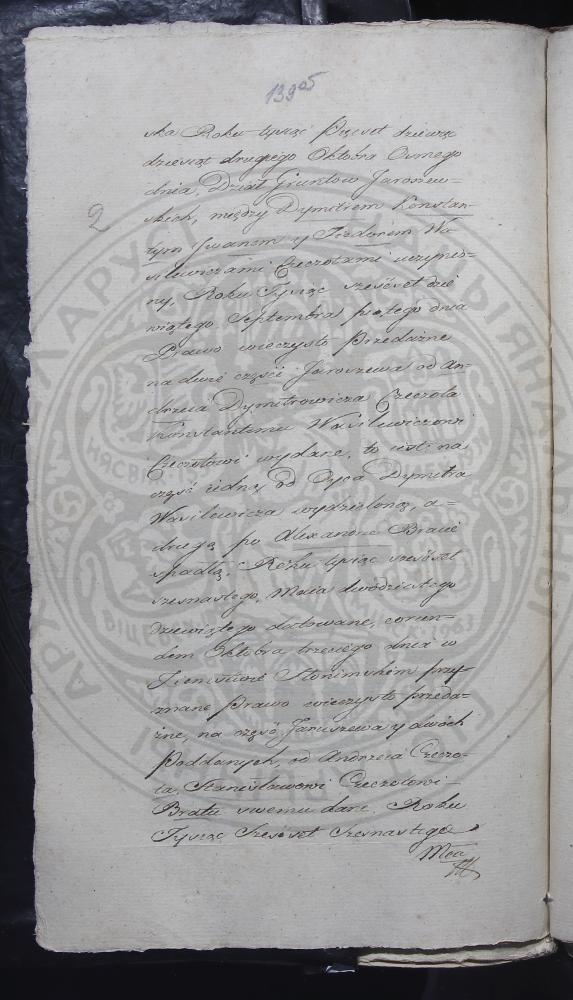 139 05
2
ska Roku tysiąc Pięcset dziewięc
dziesiąt drugiego Oktobra Osmego
dnia, Dział Gruntow Jaroszew-
skich, między Dymitrem Konstan-
tym Jwanem y Fedorem Wa-
silewiczami Czeczotami uczynio-
ny, Roku Tysiąc szesćset dzie
wiątego Septembra piątego dnia
Prawo wieczysto Przedażne
na dwie częsci Jaroszewa od An-
drzeia Dymitrowicza Czeczota
Konstantemu Wasilewiczowi
Czeczotowi wydane, to iest: na
częsć iedną od Oyca Dymitra
Wasilewicza wydzieloną, a
drugą po Alexandrze Bracie
spadłą. Roku tysiąc szesćset
szesnastego, Maia dwódziestego
dziewiątego datowane, eorun-
dem Oktobra trzeciego dnia w
Ziemstwie Słonimskim przy-
znane Prawo wieczysto przeda-
żne, na częsć Jaroszewa y dwóch
Poddanych, od Andrzeia Czeczo-
ta, Stanisławowi Czeczotowi
Bratu swemu dane. Roku
Tysiąc Szesćset Szesnastego
Maia